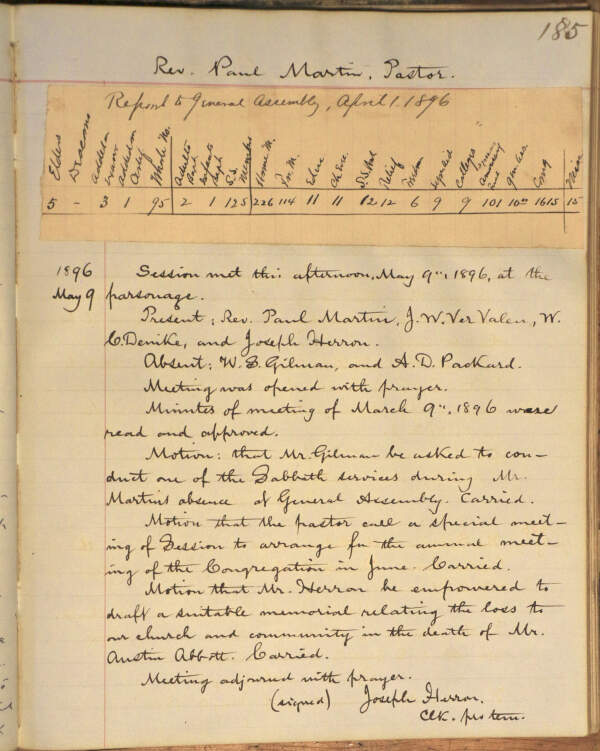 185
Rev. Paul Martin, Pastor.
Report to General Assembly, April 1. 1896
Elders Deacons added on exam added on Certif Whole No. Adults Bapt Infants Bapt S.S. Members Home M. For. M. Educ Ch. Erec Relief Freedm Synodical Colleges Gen. Ass. Cong Misc
5 - 3 1 95 2 1 125 226 114 11 11 12 12 6 9 9 101 10 1615 15
1896 Session met this afternoon, May 9", 1896, at the
May 9 parsonage.
Present; Rev. Paul Martin, J. W. Ver Valen, W.
C. Denike, and Joseph Herron.
Absent; W. S. Gilman, and A. D. Packard.
Meeting was opened with prayer.
Minutes of meeting of March 9", 1896 were
read and approved.
Motion: that Mr. Gilman be asked to con-
duct one of the Sabbath services during Mr.
Martin's absence at General Assembly. Carried.
Motion that the pastor call a special meet-
ing of Session to arrange for the annual meet-
ing of the Congregation in June. Carried.
Motion that Mr. Herron be empowered to
draft a suitable memorial relating the loss to
our church and community in the death of Mr.
Austin Abbott. Carried.
Meeting adjourned with prayer.
(signed) Joseph Herron.
Clk. pro tem.